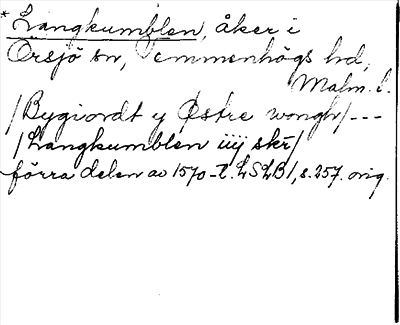 * Langkumblen, åker i
Örsjö sn, Vemmenhögs hd,
Malm. l.
/Bygiordt y Østre wongh/ ---
/Langkumblen iiij skr/
förra delen av 1570-t. LSLB1, s. 257. orig.